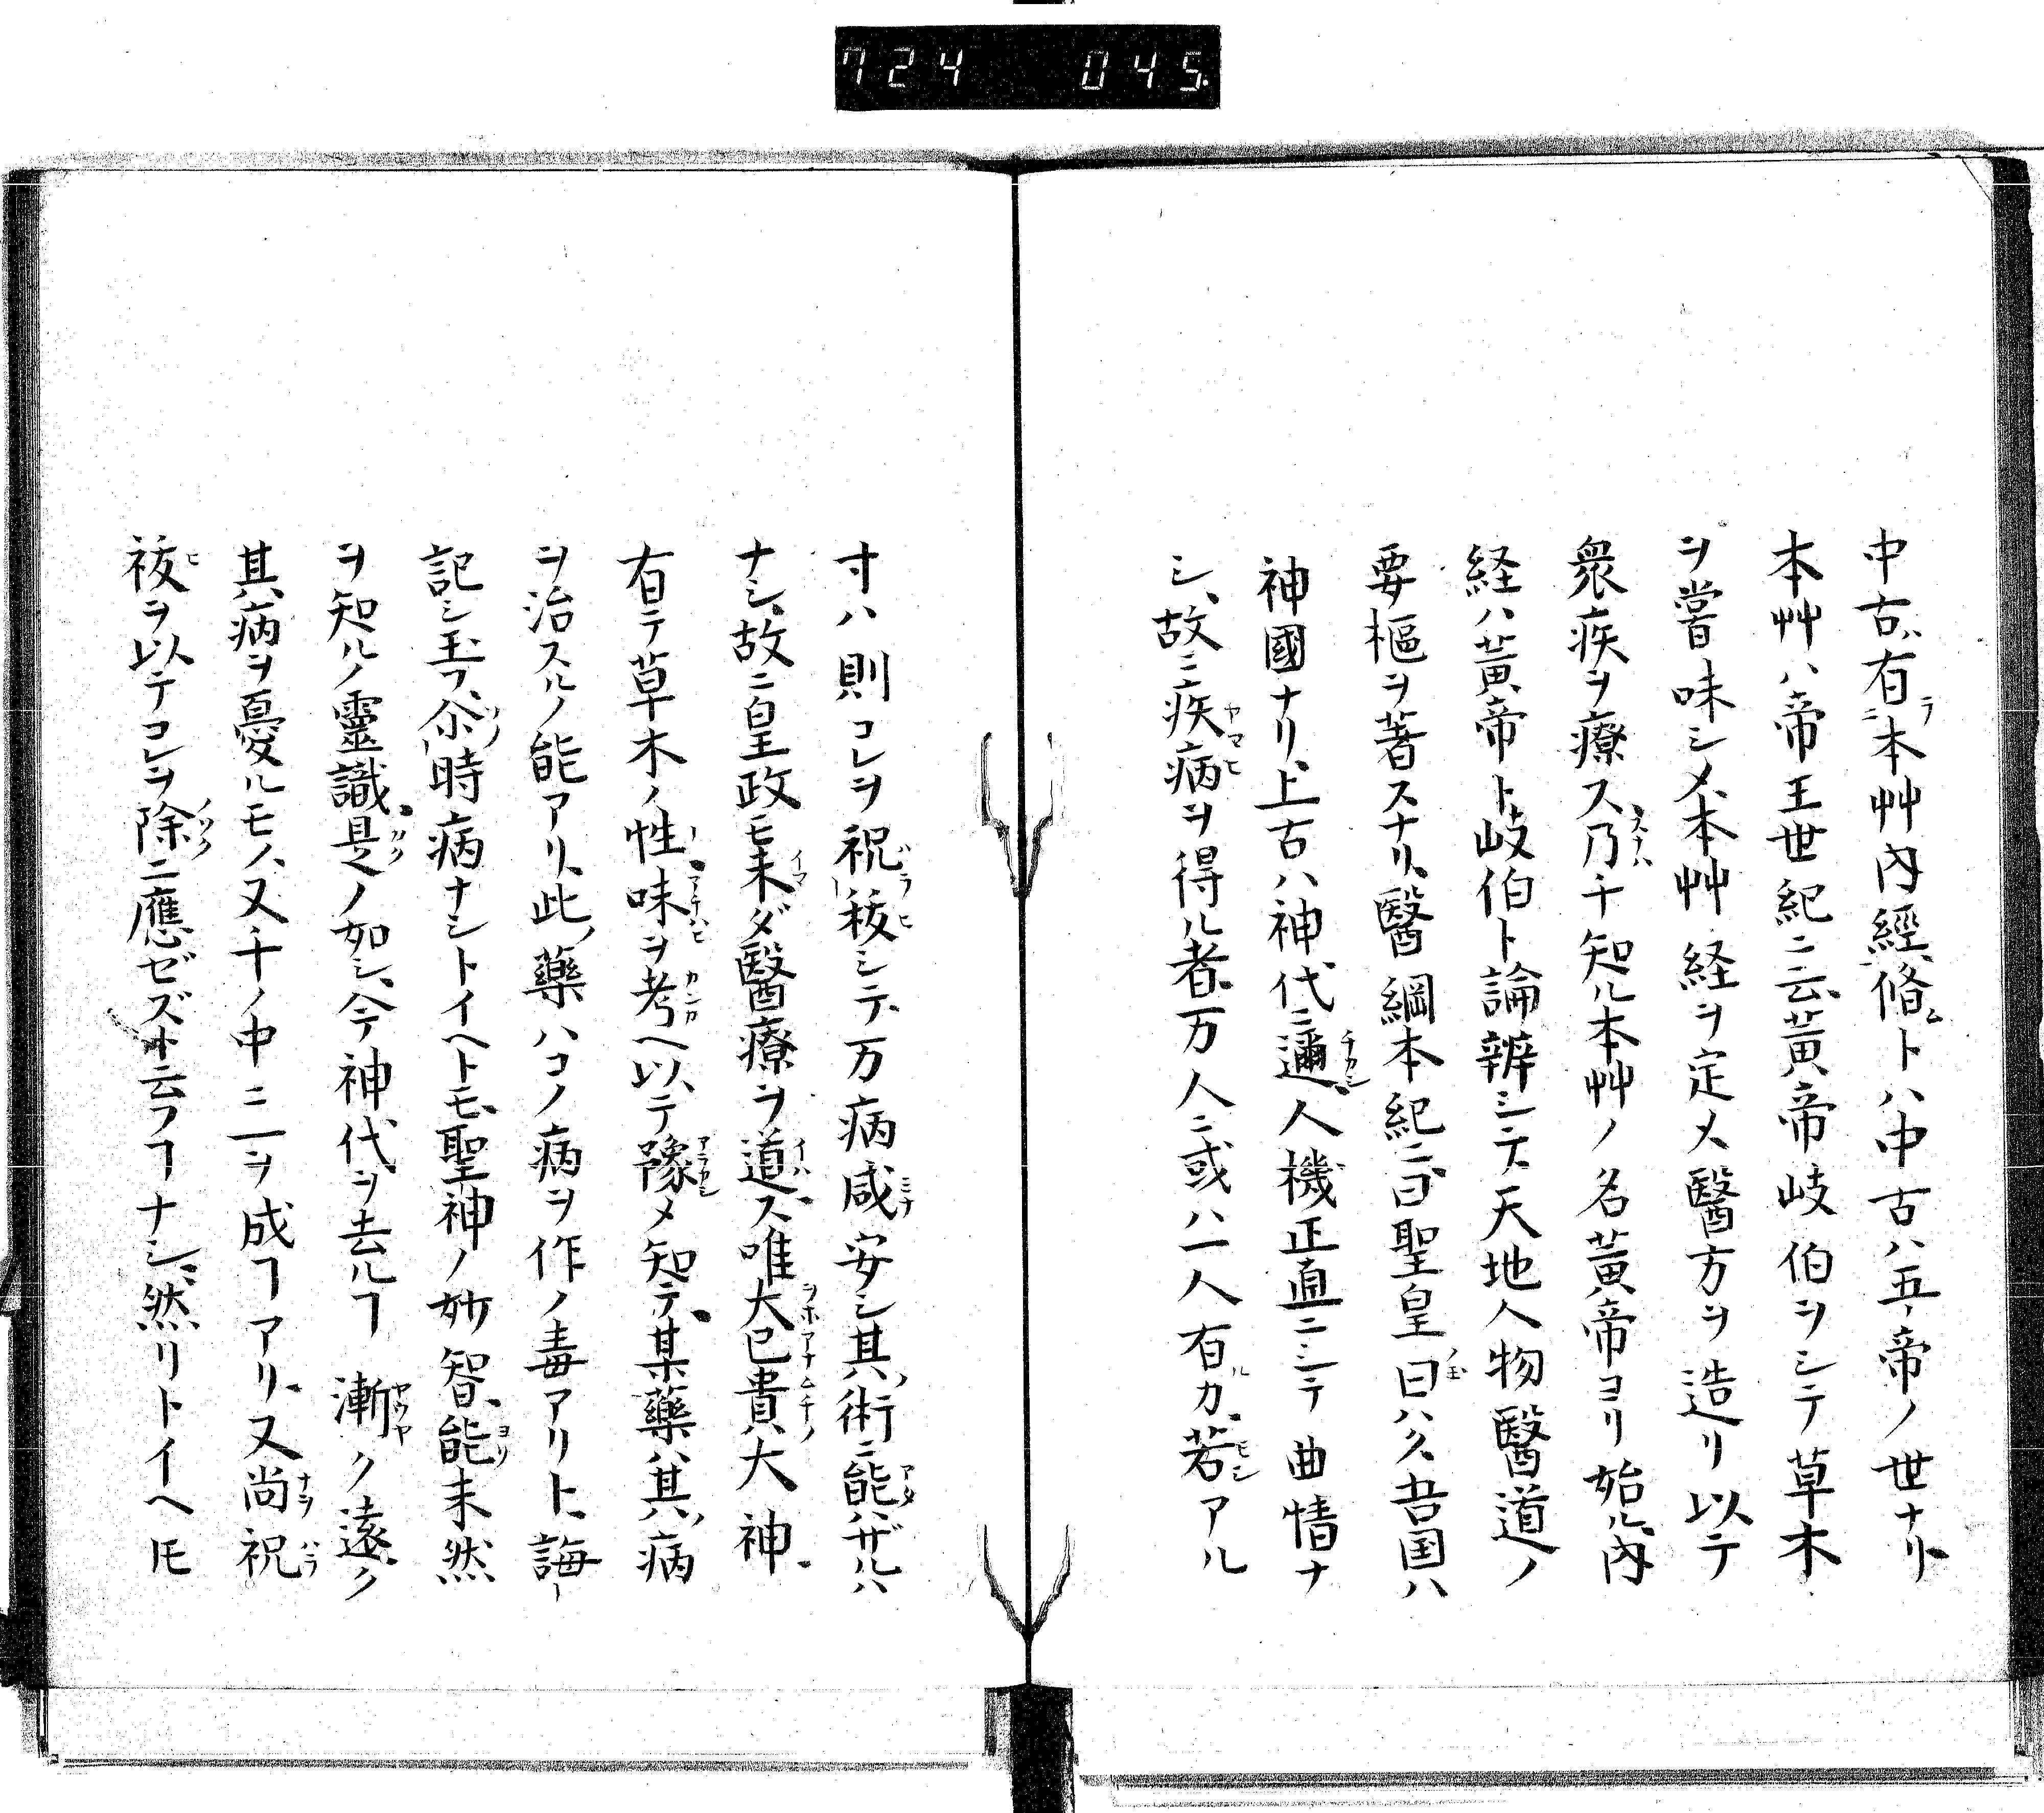 724 045
中古有本艸内經脩トハ中古ハ五帝ノ世ナリ
本艸ハ帝王世紀ニ云黄帝岐伯ヲシテ草木
ヲ嘗味シメ本艸経ヲ定メ醫方ヲ造リ以テ
衆疾ヲ療ス乃チ知ル本艸ノ名黄帝ヨリ始ル内
経ハ黄帝ト岐伯ト論辨シテ天地人物醫道ノ
要樞ヲ著スナリ醫綱本紀ニ曰聖皇曰ハク吾国ハ
神國ナリ上古ハ神代ニ邇人機正直ニシテ曲情ナ
シ故ニ疾病ヲ得ル者万人ニ或ハ一人有カ若アル
寸ハ則コレヲ祝祓シテ万病咸安シ其術ニ能ハザルハ
ナシ故ニ皇政モ未ダ醫療ヲ道ス唯大已貴大神
有テ草木ノ性味ヲ考ヘ以テ豫メ知テ某藥ハ其病
ヲ治スルノ能アリ此藥ハコノ病ヲ作ノ毒アリト誨
記シ玉フ尒時病ナシトイヘトモ聖神ノ妙智能未然
ヲ知ルノ靈識是ノ如シ今神代ヲ去ルヿ漸ク遠ク
其病ヲ憂ルモノ又千ノ中ニ一ヲ成ヿアリ又尚祝
祓ヲ以テコレヲ除ニ應ゼズト云フヿナシ然リトイヘ𪜈